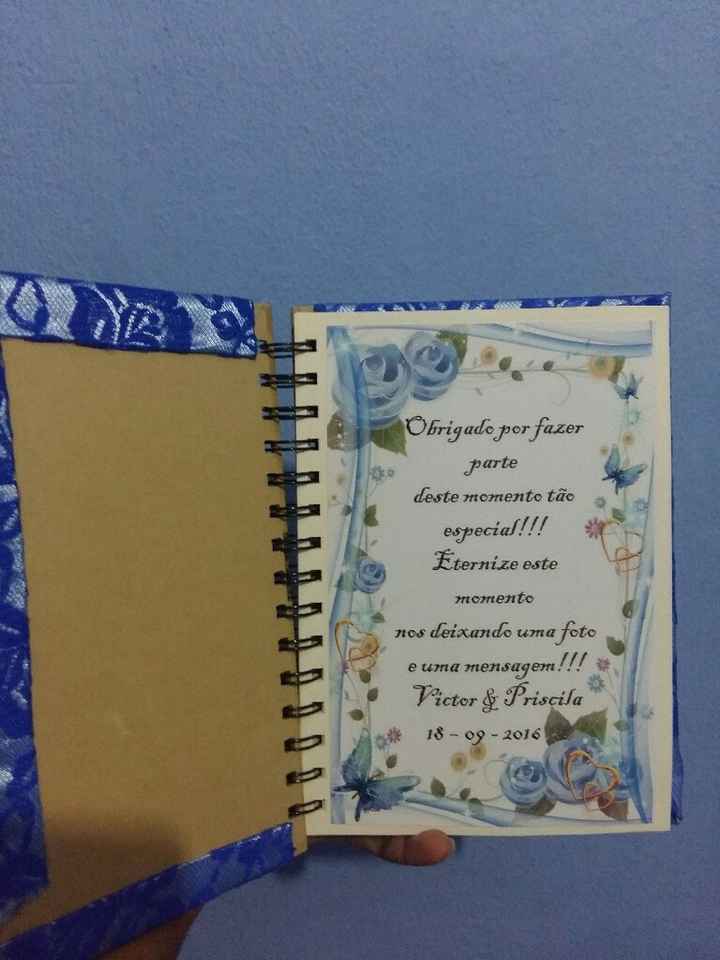 Obrigado por fazer
parte
deste momento tão
especial!!!
Eternize este
momento
nos deixando uma foto
e uma mensagem!!!
Victor & Priscila
18 - 09 - 2016